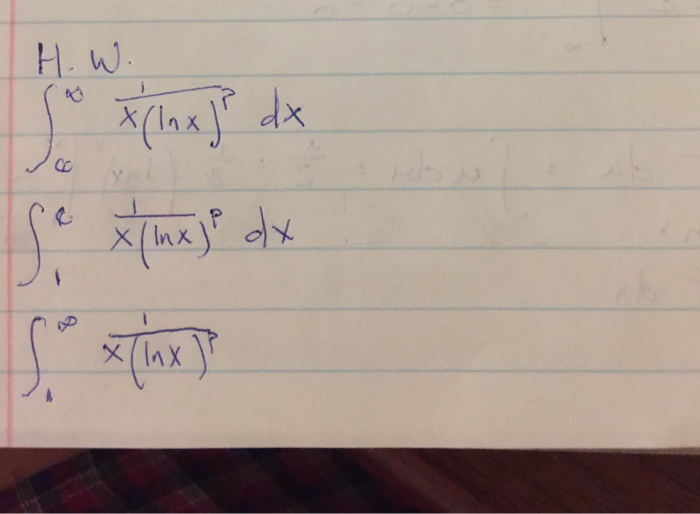 H. W.
∫_∞^∞ 1/(x(ln x)^p) dx
∫_1^e 1/(x(ln x)^p) dx
∫_1^∞ 1/(x(ln x)^p)